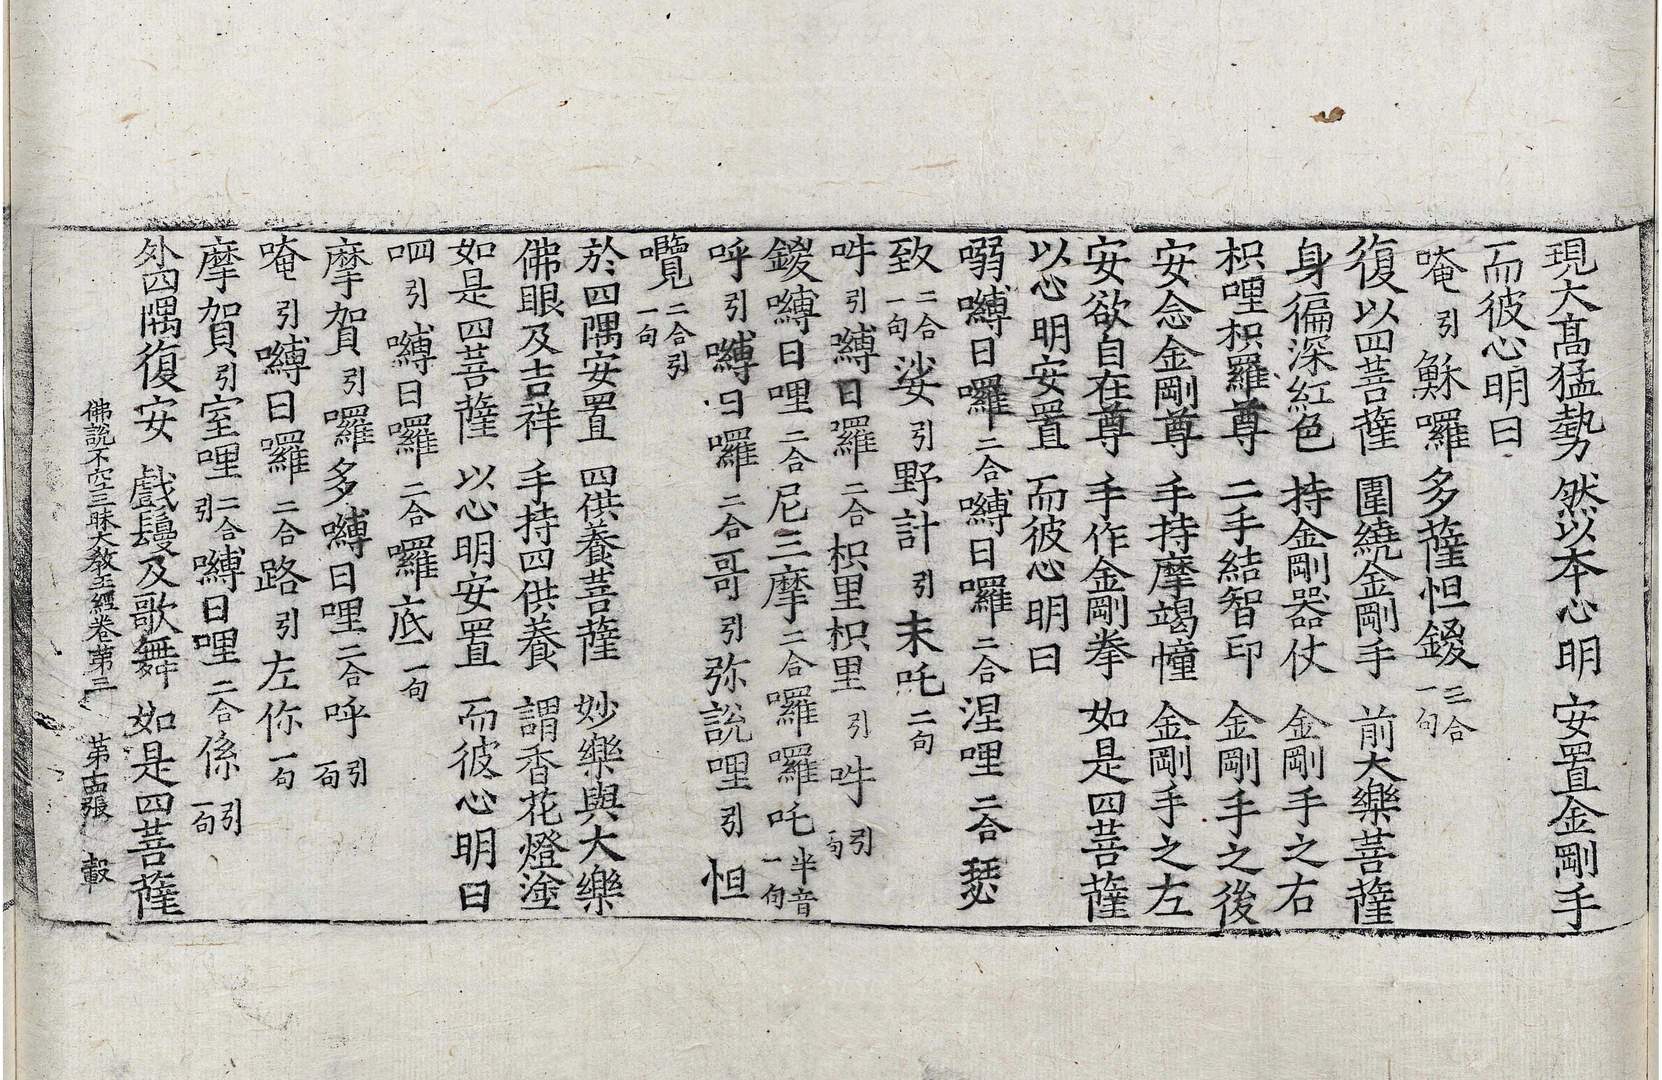 現大高猛勢　然以本心明　安置金剛手
而彼心明曰
唵引穌囉多薩怛鍐三合一句
復以四菩薩　圍繞金剛手　前大樂菩薩
身徧深紅色　持金剛器仗　金剛手之右
枳哩枳羅尊　二手結智印　金剛手之後
安念金剛尊　手持摩竭幢　金剛手之左
安欲自在尊　手作金剛拳　如是四菩薩
以心明安置　而彼心明曰
弱嚩日囉二合嚩日囉二合涅哩二合瑟
致二合一句娑引野計引末吒二句
吽引嚩日囉二合枳里枳里引吽引一句
鍐嚩日哩二合尼三摩二合囉囉吒半音一句
呼引嚩日囉二合哥引弥說哩引怛
囕二合引一句
於四隅安置　四供養菩薩　妙樂與大樂
佛眼及吉祥　手持四供養　謂香花燈塗
如是四菩薩　以心明安置　而彼心明曰
呬引嚩日囉二合囉底一句
摩賀引囉多嚩日哩二合呼引一句
唵引嚩日囉二合路引左你一句
摩賀引室哩二合引嚩日哩二合係引一句
外四隅復安　戲鬘及歌舞　如是四菩薩
佛說不空三昧大教王經卷第三　第十四張　轂